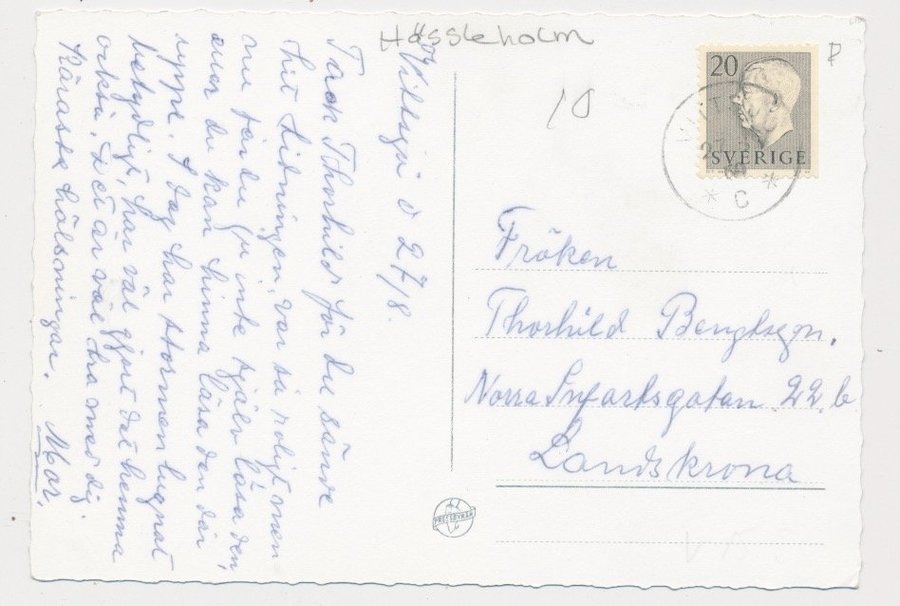 Hässleholm
10
20
SVERIGE
C
Vittsjö d 27/8.
Tack Thorhild för du sände
hit tidningen, var så roligt men
nu får du ju inte själv läsa den,
men du kan hinna läsa den där
uppe. I dag har stormen lugnat
betydligt, har väl gjort det hemma
också. Det är väl bra med dig.
Käraste hälsningar. Mor.
Fröken
Thorhild Bengtsson.
Norra Infartsgatan 22 b
Landskrona